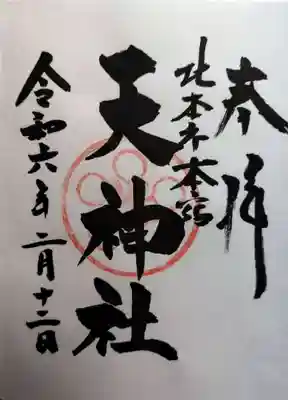 奉拝
北本市本宿
天神社
令和六年二月十二日